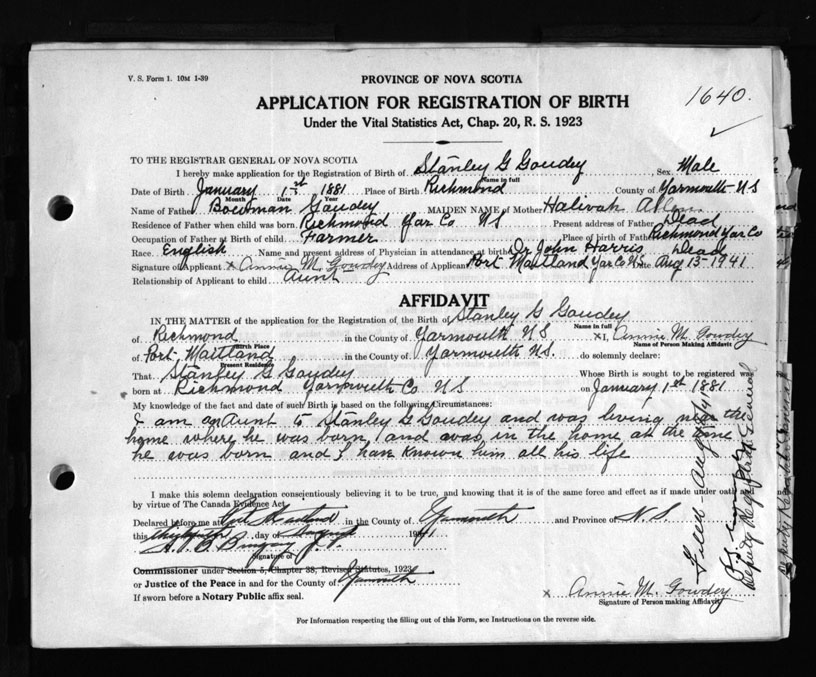 V. S. Form 1. 10M 1-39
PROVINCE OF NOVA SCOTIA
1640.
APPLICATION FOR REGISTRATION OF BIRTH
Under the Vital Statistics Act, Chap. 20, R. S. 1923
TO THE REGISTRAR GENERAL OF NOVA SCOTIA
I hereby make application for the Registration of Birth of Stanley G Goudey Sex Male
Name in full
Date of Birth January 1st 1881 Place of Birth Richmond County of Yarmouth N S
Month Date Year
Name of Father Bowman Goudey MAIDEN NAME of Mother Halivah Allen
Residence of Father when child was born Richmond Yar Co N S Present address of Father Dead
Occupation of Father at Birth of child Farmer Place of birth of Father Richmond Yar Co
Race English Name and present address of Physician in attendance at birth Dr John Harris Dead
Signature of Applicant x Annie M. Goudey Address of Applicant Port Maitland Yar Co N.S. Date Aug 13-1941
Relationship of Applicant to child Aunt
AFFIDAVIT
IN THE MATTER of the application for the Registration of the Birth of Stanley G Goudey
Name in full
of Richmond in the County of Yarmouth N S x I, Annie M. Goudey
Birth Place Name of Person Making Affidavit
of Port Maitland in the County of Yarmouth N S. do solemnly declare:
Present Residence
That Stanley G Goudey Whose Birth is sought to be registered was
born at Richmond Yarmouth Co N S on January 1st 1881
My knowledge of the fact and date of such Birth is based on the following Circumstances:
I am an Aunt to Stanley G Goudey and was living near the
home where he was born, and was in the home at the time
he was born and I have known him all his life
I make this solemn declaration conscientiously believing it to be true, and knowing that it is of the same force and effect as if made under oath
by virtue of The Canada Evidence Act
Declared before me at Port Maitland in the County of Yarmouth and Province of N. S.
this thirteenth day of August 1941
J. P.
Signature of
Commissioner under Section 5, Chapter 38, Revised Statutes, 1923
or Justice of the Peace in and for the County of Yarmouth
If sworn before a Notary Public affix seal.
x Annie M. Goudey
Signature of Person making Affidavit
For Information respecting the filling out of this Form, see Instructions on the reverse side.
Deputy Registrar General